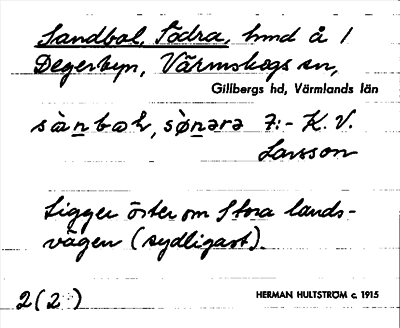 Sandbol, Södra, hmd å /
Degerbyn, Värmskogs sn,
Gillbergs hd, Värmlands län
7:- K. V.
Larsson
Ligger öster om Stora lands-
vägen (sydligast).
2(2)
HERMAN HULTSTRÖM c. 1915